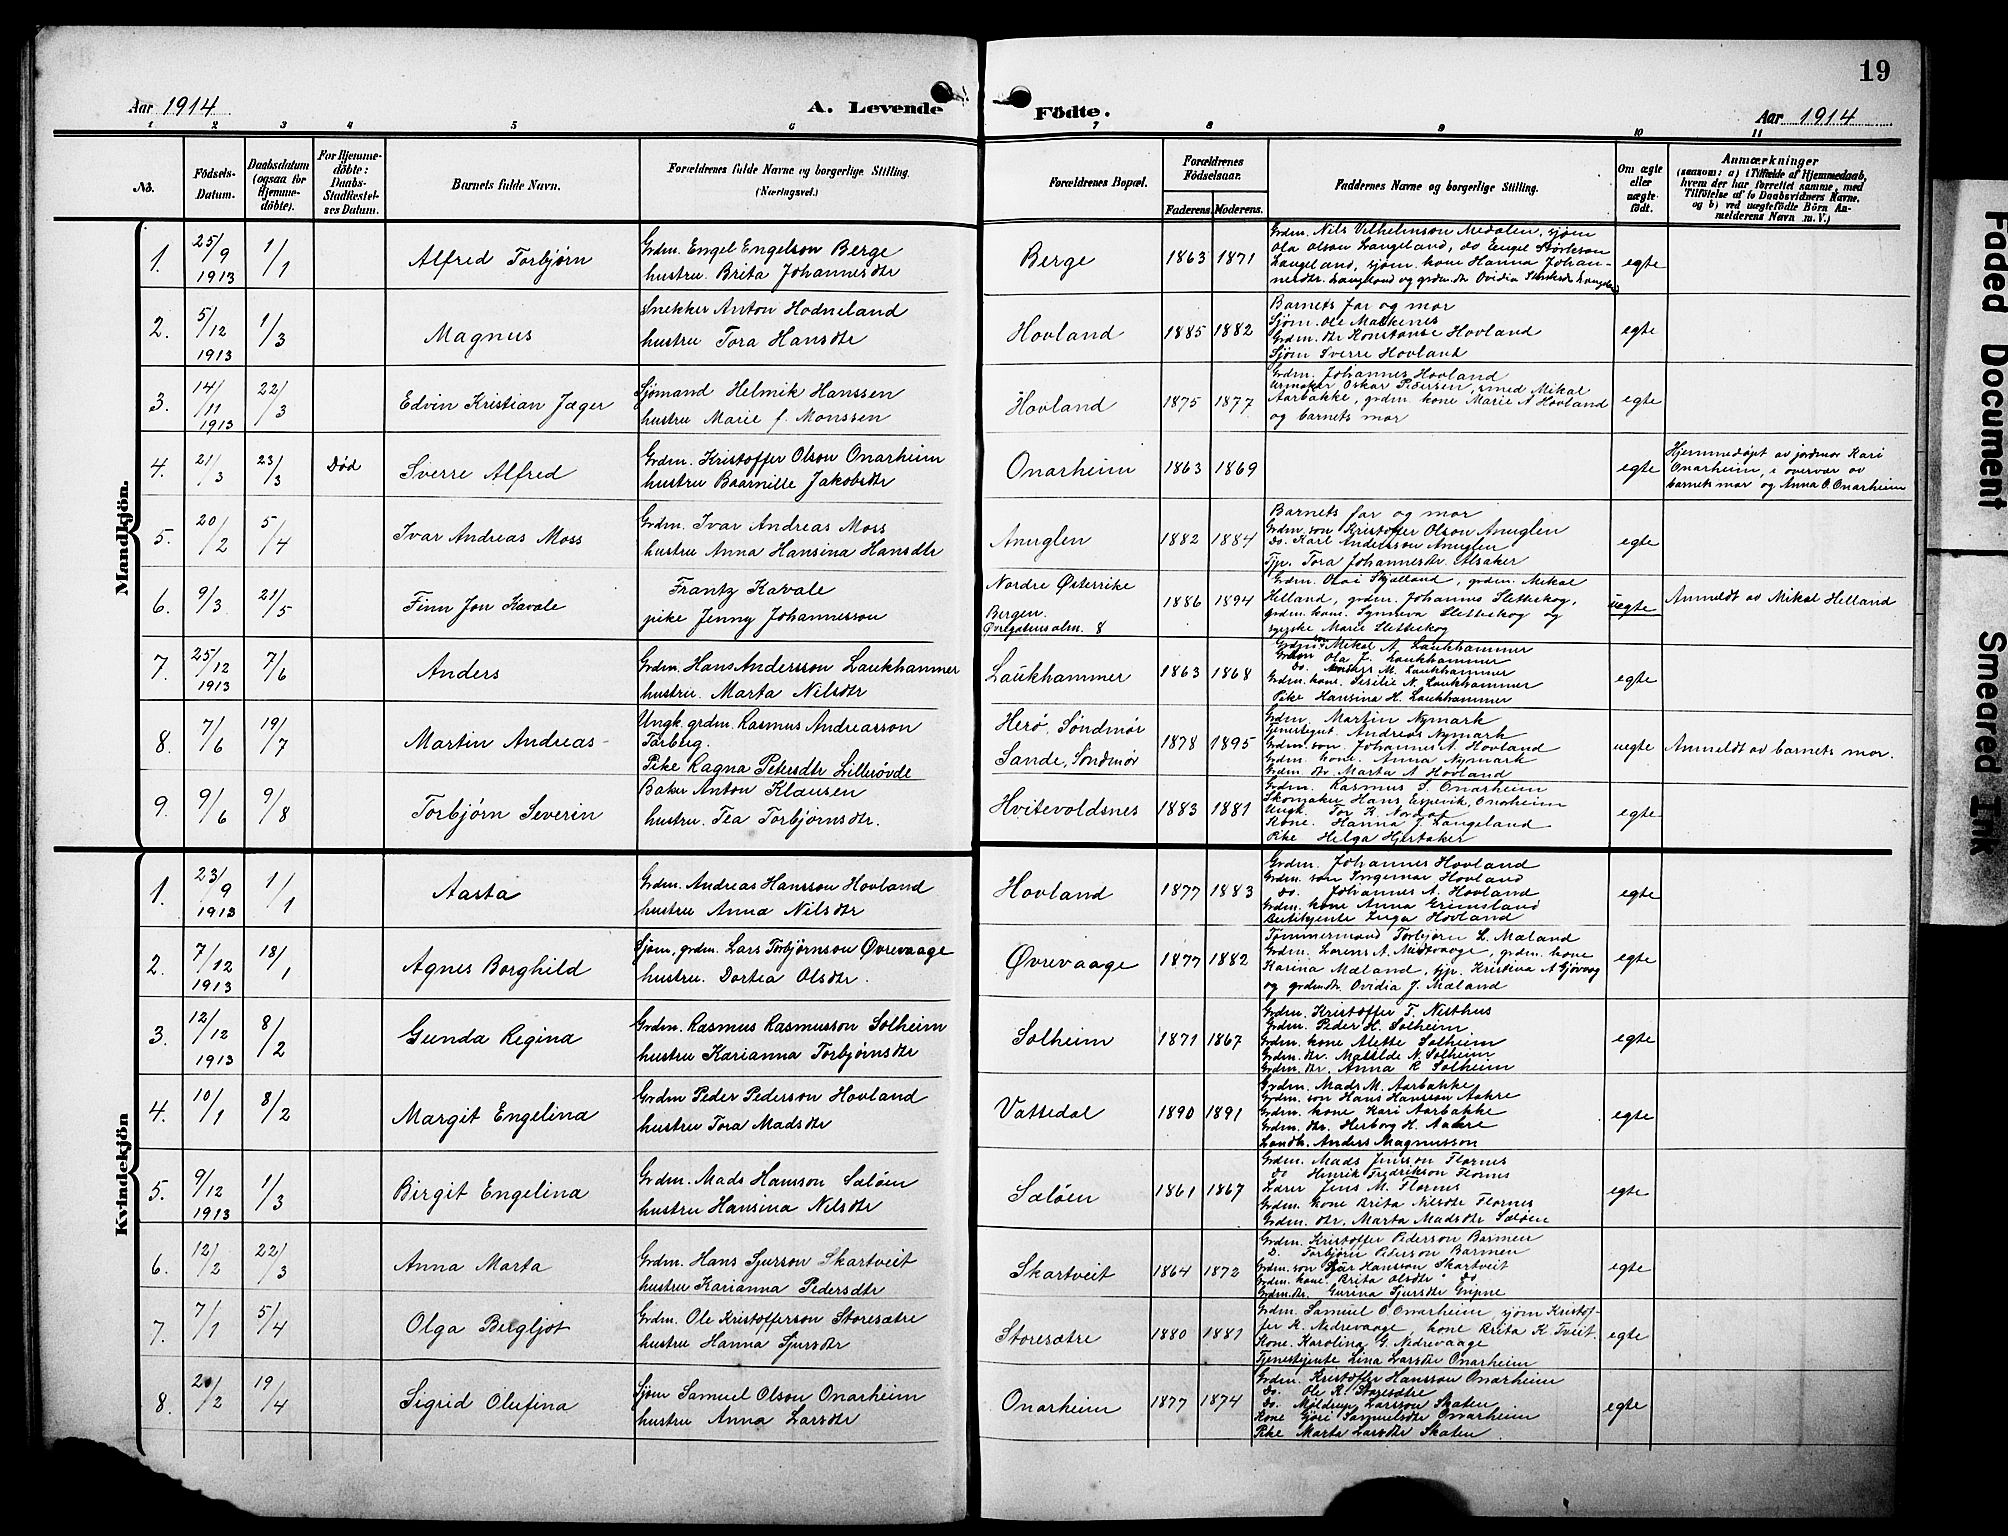 19
Aar 1914
A. Levende
Födte.
Aar 1914
1 2 3 4 5 6 7 8 9 10 11
No.
Födsels-Datum.
Daabsdatum (ogsaa for Hjemme-döbte).
For Hjemme-döbte: Daabs-Stadfæstel-ses Datum.
Barnets fulde Navn.
Forældrenes fulde Navne og borgerlige Stilling. (Næringsvei.)
Forældrenes Bopæl.
Forældrenes Födselsaar.
Faderens. Moderens.
Faddernes Navne og borgerlige Stilling.
Om ægte eller uægte födt.
Anmærkninger
(saasom: a) i Tilfælde af Hjemmedaab,
hvem der har forrettet samme, med
Tilföielse af to Daabsvidners Navne,
og b) ved uægtefödte Börn An-
melderens Navn m. V.)
Mandkjön.
1. 25/9 1913 1/1 Alfred Torbjørn
Grdm. Engel Engelson Berge
hustru Brita Johannesdtr
Berge 1863 1871
Grdm. Nils Vilhelmson Medalen, sjøm
Ola Olson Langeland, do Engel Størkson
Langeland, sjøm. kone Hanna Johan-
nesdtr. Langeland og grdm. dtr Ovidia
egte
2. 5/12 1913 1/3 Magnus
Snekker Anton Hodneland
hustru Tora Hansdtr
Hovland 1885 1882
Barnets far og mor
Sjøm. Ole Matkenes
Grdm. dtr Konstanse Hovland
Sjøm Sverre Hovland
egte
3. 14/11 1913 22/3 Edvin Kristian Jæger
Sjømand Helmik Hanssen
hustru Marie f. Monssen
Hovland 1875 1877
Grdm. Johannes Hovland
Urmaker Oskar Pedersen, smed Mikal
Aarbakke, grdm. kone Marie A Hovland
og barnets mor
egte
4. 21/3 23/3 Død Sverre Alfred
Grdm. Kristoffer Olson Onarheim
hustru Baarnille Jakobsdtr
Onarheim 1863 1869
egte
Hjemmedøpt av jordmor Kari
Onarheim, i overvær av
barnets mor og Anna O. Onarheim
5. 20/2 5/4 Ivar Andreas Moss
Grdm. Ivar Andreas Moss
hustru Anna Hansina Hansdtr
Anuglen 1882 1884
Barnets far og mor
Grdm. son Kristoffer Olson Anuglen
Do. Karl Andersson Anuglen
Tjp. Tora Johannesdtr. Alsaker
egte
6. 9/3 21/5 Finn Jon Kavale
Frantz Kavale
pike Jenny Johannesson
Nordre Østerrike
Bergen.
Øvregatensalm. 8
1886 1894
Grdm. Olai Skjelland, grdm. Mikal
Helland, grdm. Johannes Slettskog,
grdm. kone. Synneva Slettskog og
sypike Marie Slettskog
uegte
Anmeldt av Mikal Helland
7. 25/12 1913 7/6 Anders
Grdm. Hans Andersson Laukhammer
hustru. Marta Nilsdtr
Laukhammer 1863 1868
Grdm. son Mikal A. Laukhammer
Ola J. Laukhammer
do. Anders M. Laukhammer
Grdm. kone. Sesilie N. Laukhammer
Pike Hansina H. Laukhammer
egte
8. 7/6 19/7 Martin Andreas
Ungk. grdm. Rasmus Andreasson
Torberg.
Pike Ragna Petersdtr Lillerøvde
Herø, Søndmør
Sande, Søndmør
1878 1895
Grdm. Martin Nymark
Tjenestegut. Andreas Nymark
Grdm. son. Johannes A. Hovland
Grdm. kone. Anna Nymark
Grdm. dtr. Marta A. Hovland
uegte
Anmeldt av barnets mor.
9. 9/6 9/8 Torbjørn Severin
Baker Anton Klausen
hustru. Tea Torbjørnsdtr.
Hvitevoldsnes 1883 1881
Grdm. Rasmus S. Onarheim
Skomaker Hans Espevik, Onarheim
Ungk. Tor K. Nordal
Kone. Hanna J. Langeland
Pike Helga Hjertaker
egte
Kvindekjön
1. 23/9 1913 1/1 Aasta
Grdm. Andreas Hansson Hovland
hustru Anna Nilsdtr
Hovland 1877 1883
Grdm. Johannes Hovland
Grdm. son Ingemar Hovland
do. Johannes A. Hovland
Grdm. kone Anna Grimsland
Butikjente Inga Hovland
egte
2. 7/12 1913 18/1 Agnes Borghild
Sjøm, grdm. Lars Torbjørnson Øvrevaage
hustru. Dortea Olsdtr.
Øvrevaage 1877 1882
Tømmermand Torbjørn L. Mæland
Grdm. Lorens A. Midtvaage, grdm. kone
Karina Mæland, tjp. Kristina A Gjøvaag
og grdmdtr. Ovidia J. Mæland
egte
3. 12/12 1913 8/2 Gunda Regina
Grdm. Rasmus Rasmusson Solheim
hustru Karianna Torbjørnsdtr
Solheim 1871 1867
Grdm. Kristoffer T. Nesthus
Grdm. Peder H. Solheim
Grdm. kone Alette Solheim
Grdm. dtr. Mathilde N. Solheim
Grdm. dtr. Anna R Solheim
egte
4. 10/1 8/2 Margit Engelina
Grdm Peder Pederson Hovland
hustru Tora Madsdtr
Vattedal 1890 1891
Grdm. Mads M. Aarbakke
Grdm. son Hans Hansson Aakre
Grdm. kone Kari Aarbakke
Grdm. dtr. Herborg H. Aakre
Landh. Anders Magnusson
egte
5. 9/12 1913 1/3 Birgit Engelina
Grdm. Mads Hansson Sæløen
hustru Hansina Nilsdtr
Sæløen 1861 1867
Grdm. Mads Jensson Flornes
do Henrik Fredrikson Flornes
Lærer Jens M. Flornes
Grdm. kone Brita Nilsdtr Flornes
Grdm. dtr. Marta Madsdtr Sæløen
egte
6. 12/2 22/3 Anna Marta
Grdm. Hans Sjursson Skartveit
hustru Karianna Pedersdtr
Skartveit 1864 1872
Grdm. Kristoffer Pederson Barmen
D. Torbjørn Pederson Barmen
Grdm. son Sjur Hansson Skartveit
Grdm. kone. Brita Olsdtr do
Grdm. dtr. Gurina Sjursdtr Eripne
egte
7. 7/1 5/4 Olga Bergljot
Grdm. Ole Kristofferson Storesætre
hustru Hanna Sjursdtr
Storesætre 1880 1881
Grdm. Samuel O. Onarheim, sjøm Kristof-
fer K. Nedrevaage kone Brita K Tveit.
Kone. Karolina G. Nedrevaage
Tjenestejente Lina Larsdtr Onarheim
egte
8. 2/2 19/4 Sigrid Olufina
Sjøm Samuel Olson Onarheim
hustru Anna Larsdtr
Onarheim 1877 1874
Grdm. Kristoffer Hansson Onarheim
do. Ole K. Storesætre
do. Møldrup Larsson Skaten
Kone Gjøri Samuelsdtr Onarheim
Pike Marta Larsdtr Skaten
egte
Faded Document
Smeared Ink